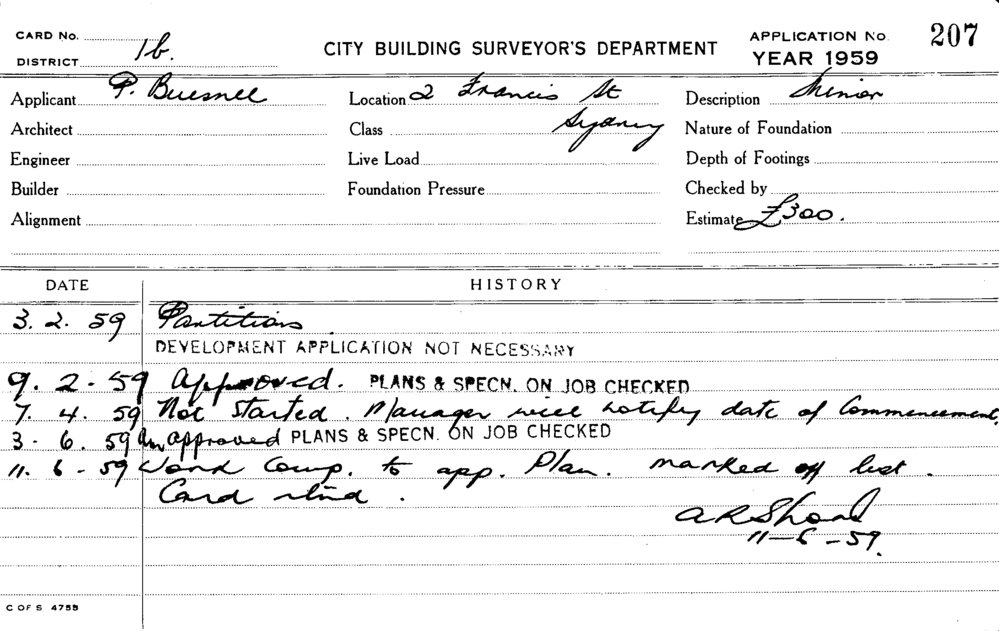 CARD No.
CITY BUILDING SURVEYOR'S DEPARTMENT
APPLICATION No. 207
DISTRICT 1b.
YEAR 1959
Applicant P. Buesnel Location 2 Francis St Description Minor
Architect Class Sydney Nature of Foundation
Engineer Live Load Depth of Footings
Builder Foundation Pressure Checked by
Alignment Estimate £300.
DATE HISTORY
3. 2. 59 Partitions
DEVELOPMENT APPLICATION NOT NECESSARY
9. 2. 59 Approved. PLANS & SPECN. ON JOB CHECKED
7. 4. 59 Not started. Manager will notify date of Commencement.
3. 6. 59 approved PLANS & SPECN. ON JOB CHECKED
11. 6 - 59 Work Comp. to app. Plan. marked off list.
Card rtnd.
11-6-59.
C OF S 4755